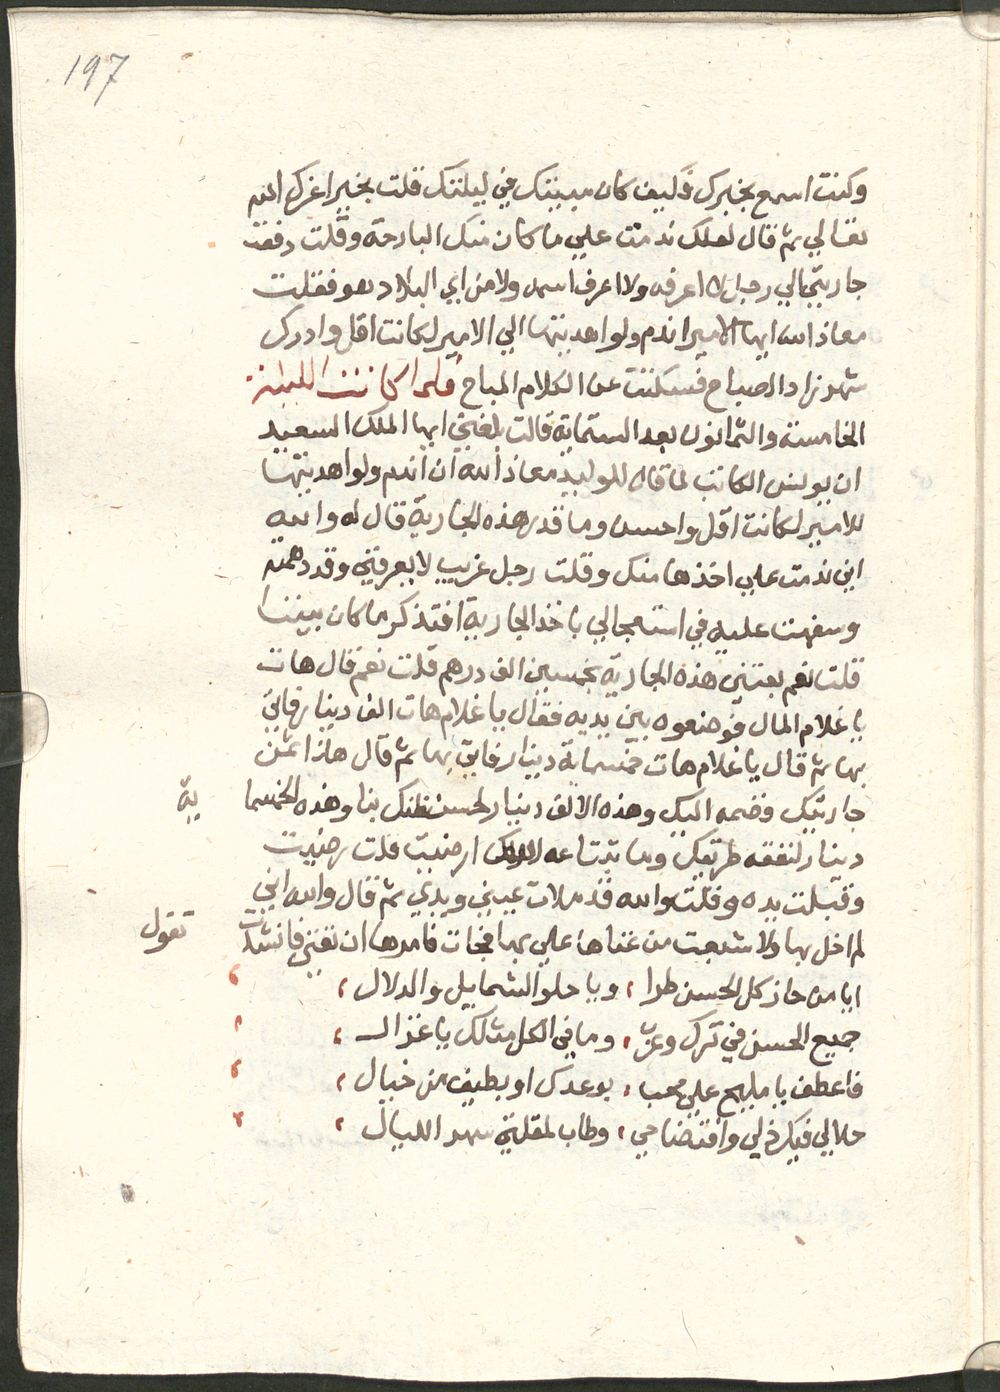 197
وكنت اسمع بخبرك فكيف كان مبيتك في ليلتك قلت بخير اعزك الله
تعالي ثم قال لعلك ندمت علي ما كان منك البارحة وقلت دفعت
جاريتي الي رجل لا اعرفه ولا اعرف اسمه ولا من اي البلاد هو فقلت
معاذ الله ايها الامير اندم ولو اهديتها الي الامير لكانت اقل وادرك
شهرزاد الصباح فسكتت عن الكلام المباح فلما كانت الليلة
الخامسة والثمانون بعد الستماية قالت بلغني ايها الملك السعيد
ان يونس الكاتب لما قال للوليد معاذ الله ان اندم ولو اهديتها
للامير لكانت اقل واحسن وما قدر هذه الجارية قال له والله
اني ندمت علي اخذها منك وقلت رجل غريب لا يعرفني وقد دهمته
وسفهت عليه في استعجالي باخذ الجارية افتذكر ما كان بيننا
قلت نعم بعتني هذه الجارية بخمسين الف درهم قلت نعم قال هات
يا غلام المال فوضعوه بين يديه فقال يا غلام هات الف دينار فاتي
بها ثم قال يا غلام هات خمسماية دينار فاتي بها ثم قال هاذا ثمن
جاريتك فضمه اليك وهذه الالف دينار لحسن ظنك بنا وهذه الخمسما
ية
دينار لنفقة طريقك وما تبتاعه لاهلك ارضيت قلت رضيت
وقبلت يده وقلت والله قد ملات عيني ويدي ثم قال والله اني
لم اخل بها ولا شبعت من غناها علي بها فجات فامرها ان تغني فانشدت
تقول
ايا من حاز كل الحسن طرا ، ويا حلو الشمايل والدلال ،
جميع الحسن في ترك وعرب ، وما في الكل مثلك يا غزال ،
فاعطف يا مليح علي محب ، بوعدك او بطيف من خيال ،
حلالي فيك ذلي وافتضاحي ، وطاب لمقلتي سهر الليال ،